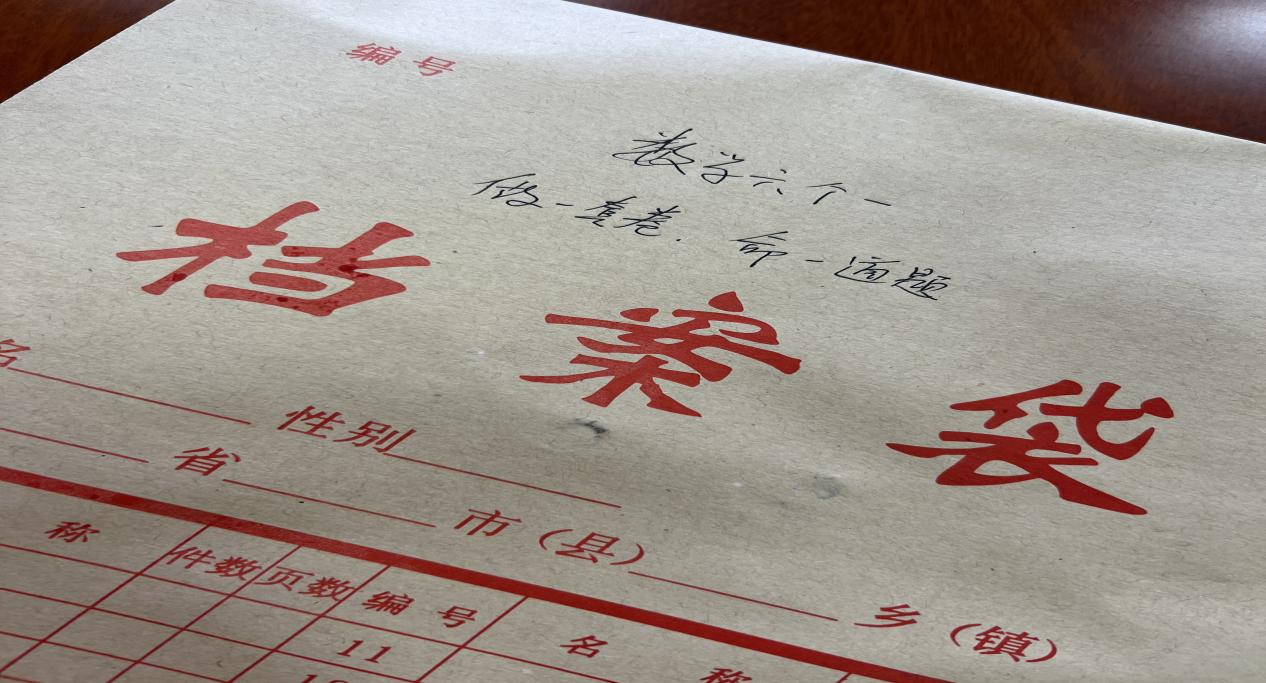 编号
数学六个一
做一套卷. 命一道题
档案袋
名 性别
省 市（县） 乡（镇）
称 件数 页数 编号 名称
11